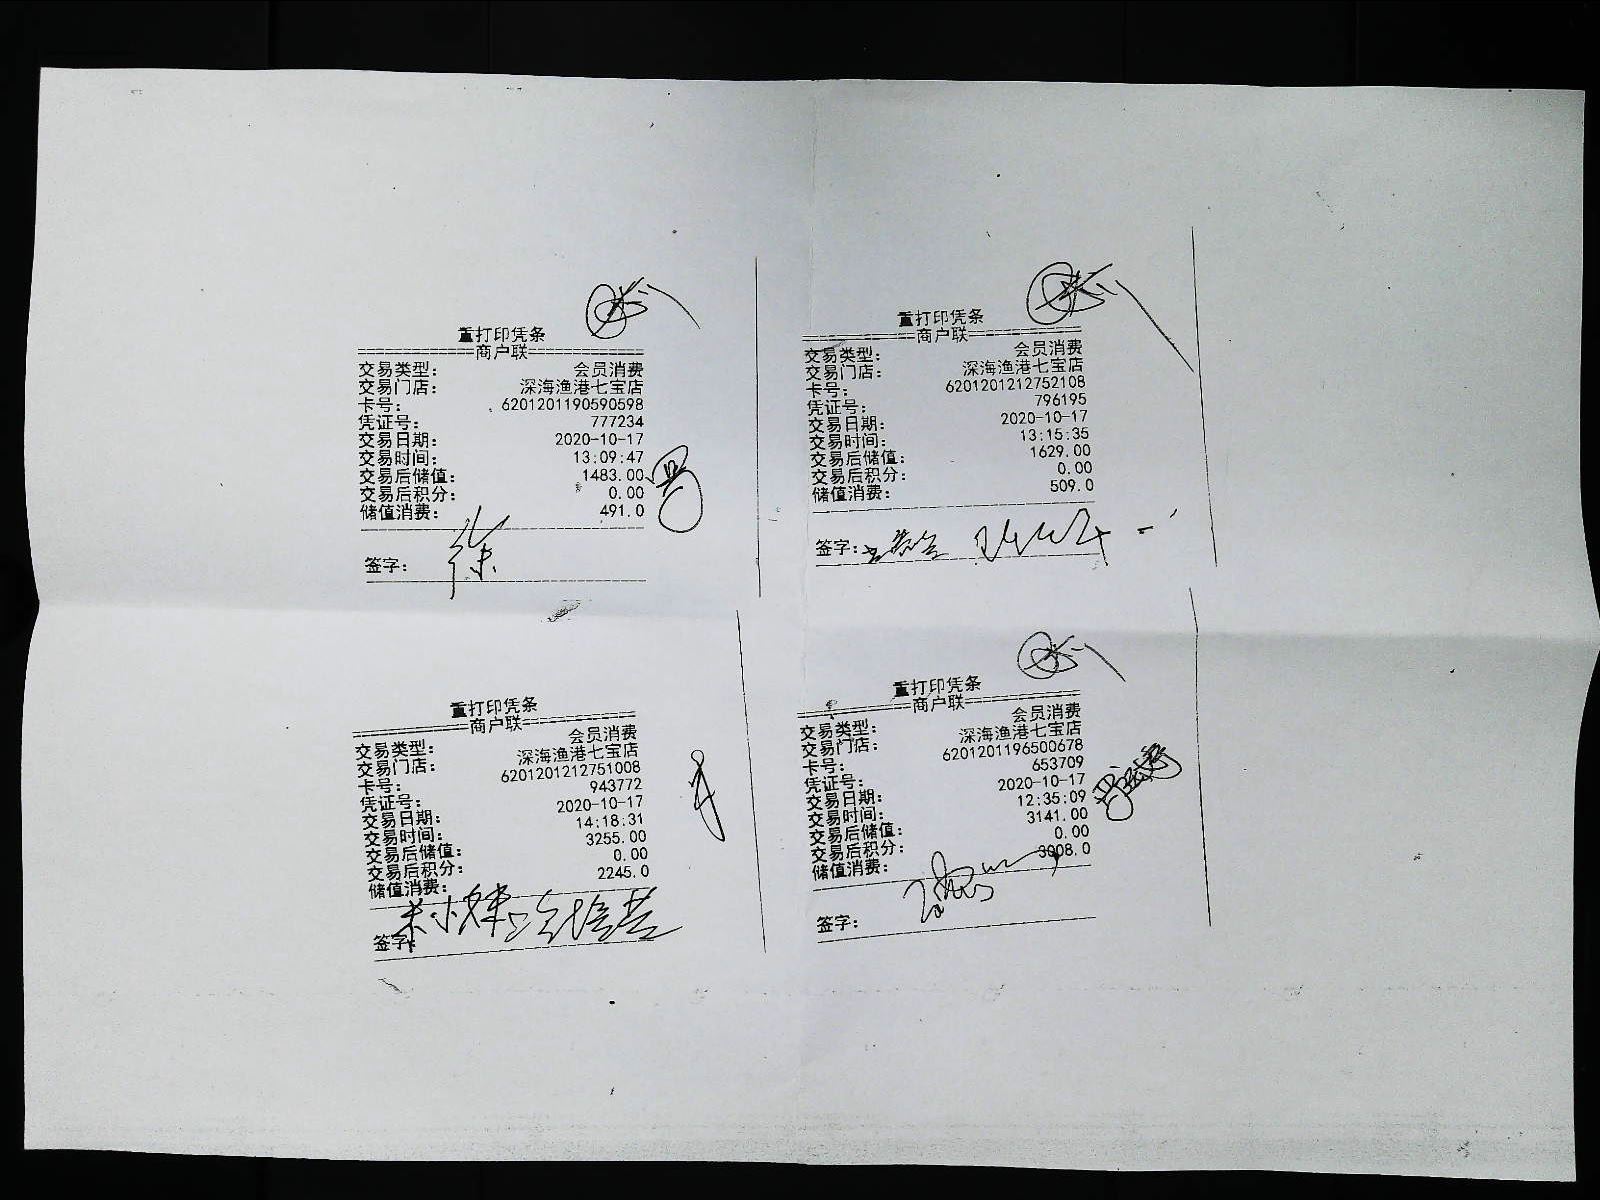 重打印凭条
商户联
交易类型: 会员消费
交易门店: 深海渔港七宝店
卡号: 6201201190590598
凭证号: 777234
交易日期: 2020-10-17
交易时间: 13:09:47
交易后储值: 1483.00
交易后积分: 0.00
储值消费: 491.0
签字: 徐
重打印凭条
商户联
交易类型: 会员消费
交易门店: 深海渔港七宝店
卡号: 6201201212752108
凭证号: 796195
交易日期: 2020-10-17
交易时间: 13:15:35
交易后储值: 1629.00
交易后积分: 0.00
储值消费: 509.0
签字:
重打印凭条
商户联
交易类型: 会员消费
交易门店: 深海渔港七宝店
卡号: 6201201212751008
凭证号: 943772
交易日期: 2020-10-17
交易时间: 14:18:31
交易后储值: 3255.00
交易后积分: 0.00
储值消费: 2245.0
签字:
重打印凭条
商户联
交易类型: 会员消费
交易门店: 深海渔港七宝店
卡号: 6201201196500678
凭证号: 653709
交易日期: 2020-10-17
交易时间: 12:35:09
交易后储值: 3141.00
交易后积分: 0.00
储值消费: 3008.0
签字: